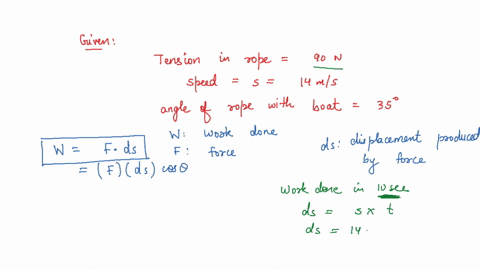 Given:
Tension in rope = 90 N
speed = s = 14 m/s
angle of rope with boat = 35°
W = F • ds
= (F) (ds) cosθ
W: work done
F: force
ds: displacement produced by force
work done in 10 sec
ds = s × t
ds = 14.